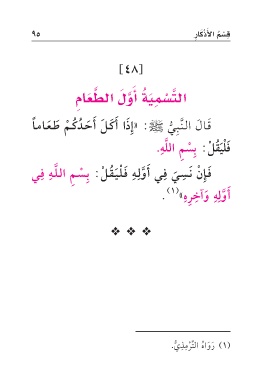 قِسْمُ الأَذْكَارِ ٩٥
[٤٨]
التَّسْمِيَةُ أَوَّلَ الطَّعَامِ
قَالَ النَّبِيُّ ﷺ: «إِذَا أَكَلَ أَحَدُكُمْ طَعَاماً
فَلْيَقُلْ: بِسْمِ اللَّهِ.
فَإِنْ نَسِيَ فِي أَوَّلِهِ فَلْيَقُلْ: بِسْمِ اللَّهِ فِي
أَوَّلِهِ وَآخِرِهِ»(١).
(١) رَوَاهُ التِّرْمِذِيُّ.